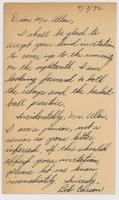 4/7/42
Dear Mr. Allen,
I shall be glad to
accept your kind invitation
to come up to the university
on the eighteenth. I am
looking forward to both
the relays and the basket-
ball practice.
Incidentally, Mr. Allen,
I am a junior, not a
senior as your letter
inferred. If this should
affect your invitation
please let me know
immediately. Sincerely,
Bob